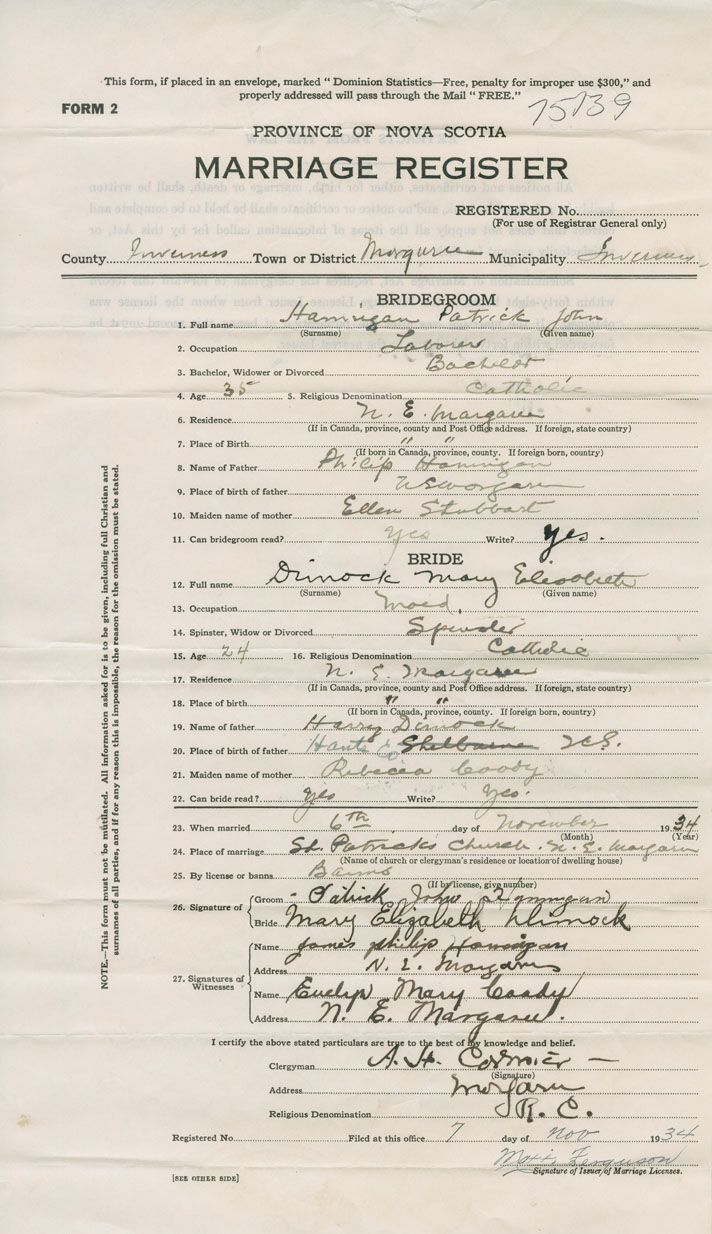 This form, if placed in an envelope, marked "Dominion Statistics—Free, penalty for improper use $300," and
properly addressed will pass through the Mail "FREE."
FORM 2
75139
PROVINCE OF NOVA SCOTIA
MARRIAGE REGISTER
REGISTERED No.
(For use of Registrar General only)
County Inverness Town or District Margaree Municipality Inverness
BRIDEGROOM
1. Full name Hannigan Patrick John
(Surname) (Given name)
2. Occupation Laborer
3. Bachelor, Widower or Divorced Bachelor
4. Age 35 5. Religious Denomination Catholic
6. Residence N. E. Margaree
(If in Canada, province, county and Post Office address. If foreign, state country)
7. Place of Birth " "
(If born in Canada, province, county. If foreign born, country)
8. Name of Father Philip Hannigan
9. Place of birth of father Margaree
10. Maiden name of mother Ellen Stubbart
11. Can bridegroom read? yes Write? yes.
BRIDE
12. Full name Dimock Mary Elisabeth
(Surname) (Given name)
13. Occupation Maid.
14. Spinster, Widow or Divorced Spinster
15. Age 24 16. Religious Denomination Catholic
17. Residence N. E. Margaree
(If in Canada, province, county and Post Office address. If foreign, state country)
18. Place of birth " "
(If born in Canada, province, county. If foreign born, country)
19. Name of father Harry Dimock
20. Place of birth of father Hants Shelburne N.S.
21. Maiden name of mother Rebecca Coady
22. Can bride read? yes Write? Yes.
23. When married 6th day of November 1934
(Month) (Year)
24. Place of marriage St. Patrick's Church. N. E. Margaree
(Name of church or clergyman's residence or location of dwelling house)
25. By license or banns Banns
(If by license, give number)
26. Signature of
Groom Patrick John Hannigan
Bride Mary Elizabeth Dimock
27. Signatures of Witnesses
Name James Philip Hannigan
Address N. E. Margaree
Name Evelyn Mary Coady
Address N. E. Margaree.
I certify the above stated particulars are true to the best of my knowledge and belief.
Clergyman A. H. Cormier
(Signature)
Address Margaree
Religious Denomination R. C.
Registered No. Filed at this office 7 day of Nov 1934
Ferguson
Signature of Issuer of Marriage Licenses.
[SEE OTHER SIDE]
NOTE.—This form must not be mutilated. All information asked for is to be given, including full Christian and
surnames of all parties, and if for any reason this is impossible, the reason for the omission must be stated.